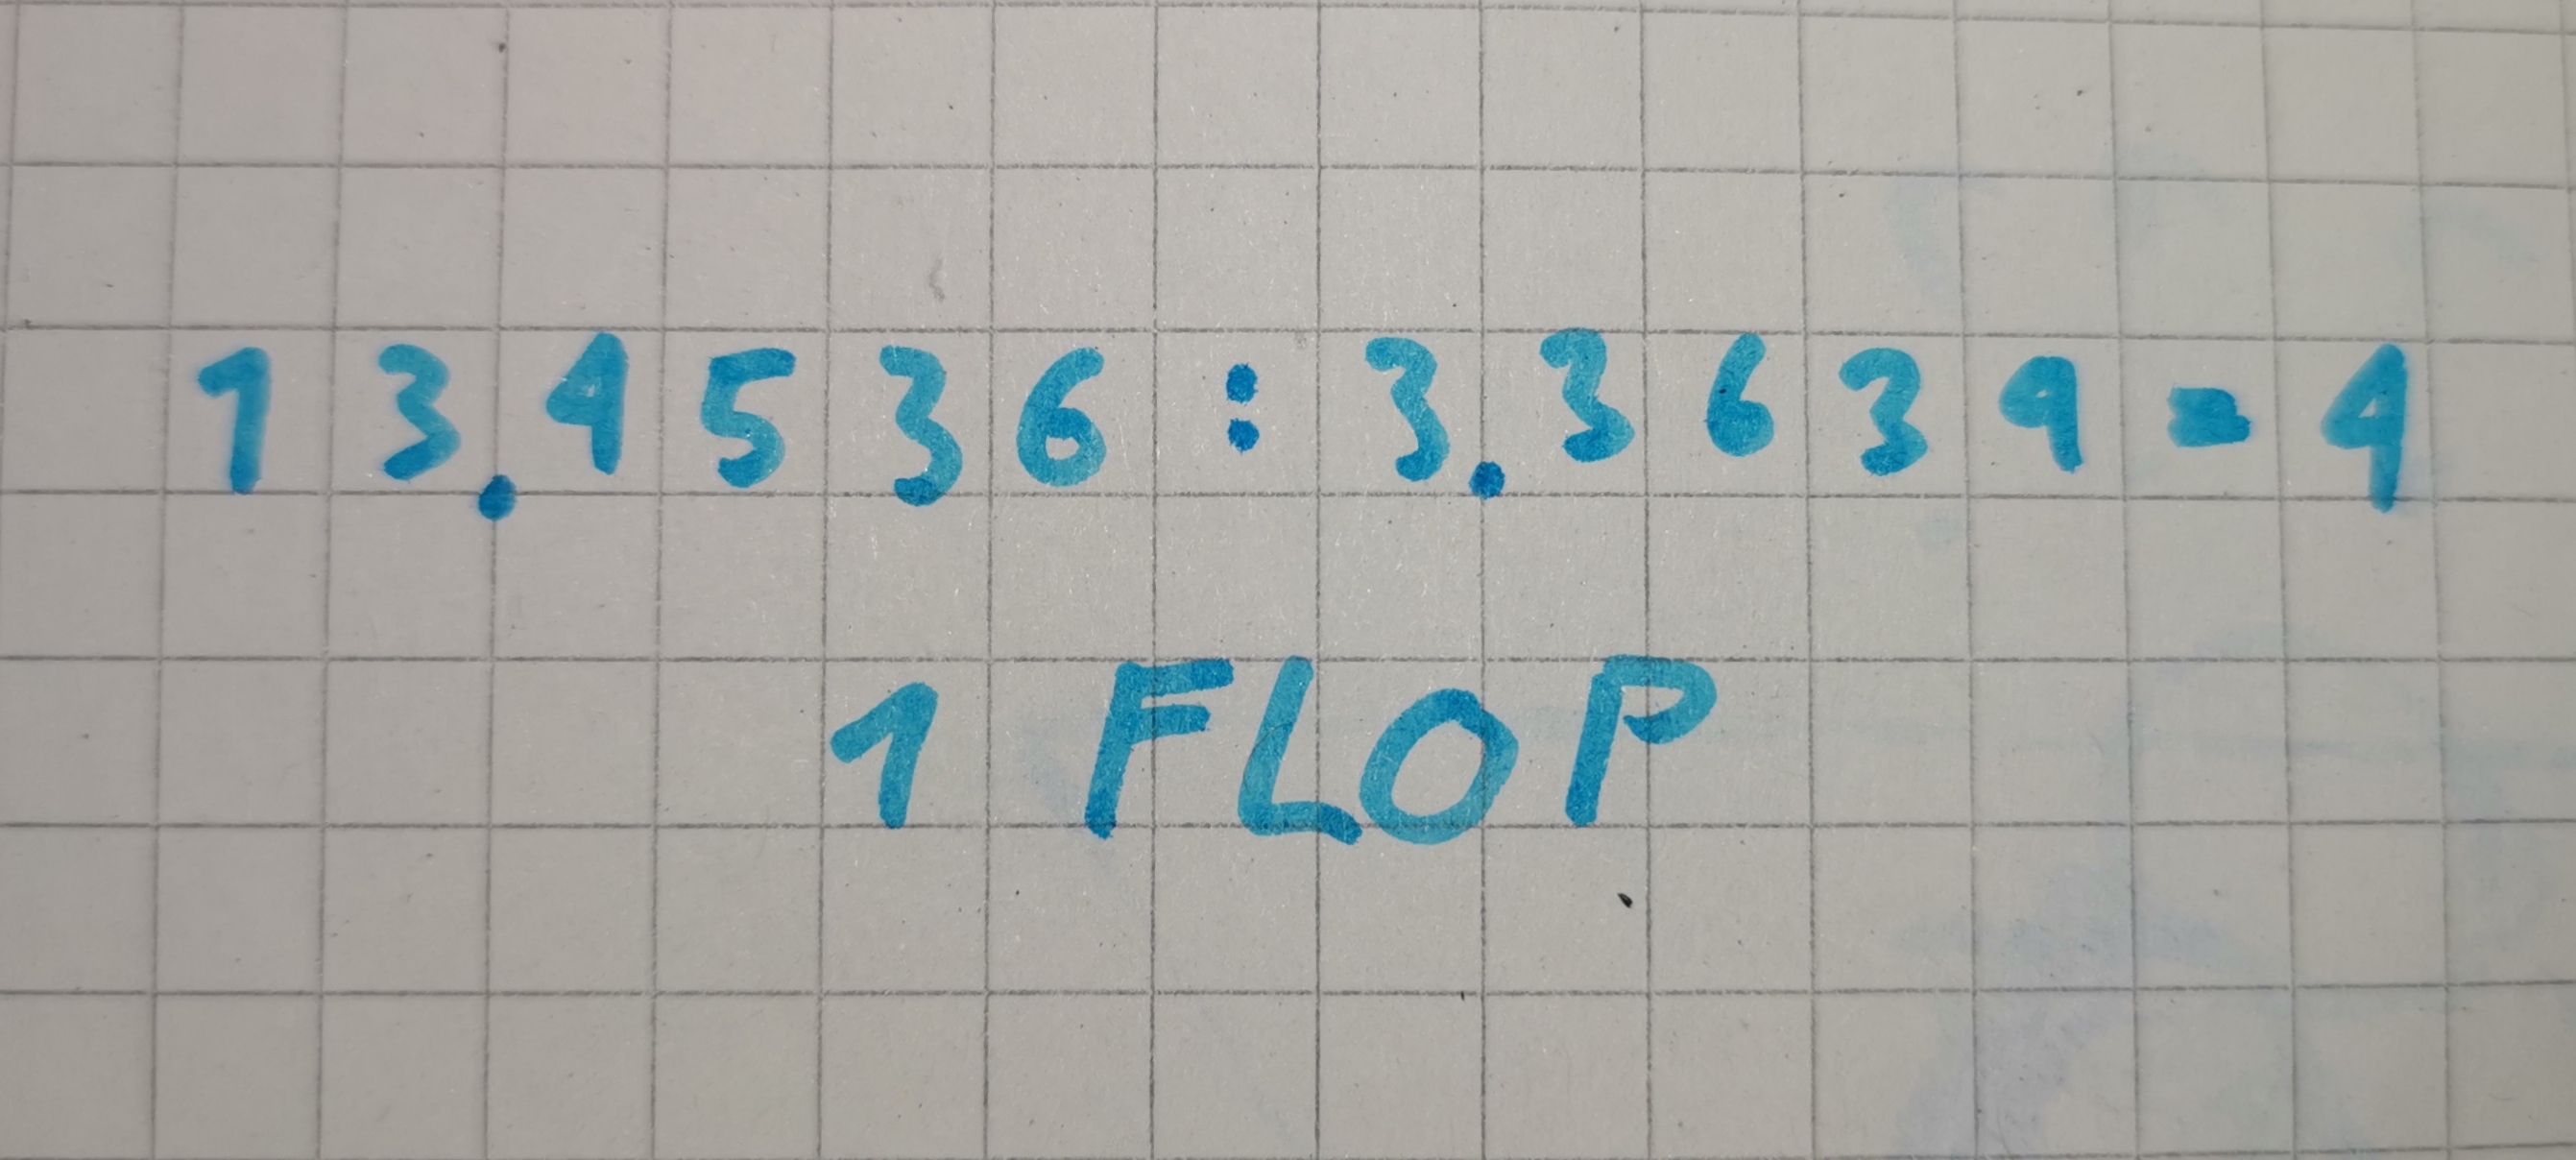 13.4536:3.3634=4
1 FLOP